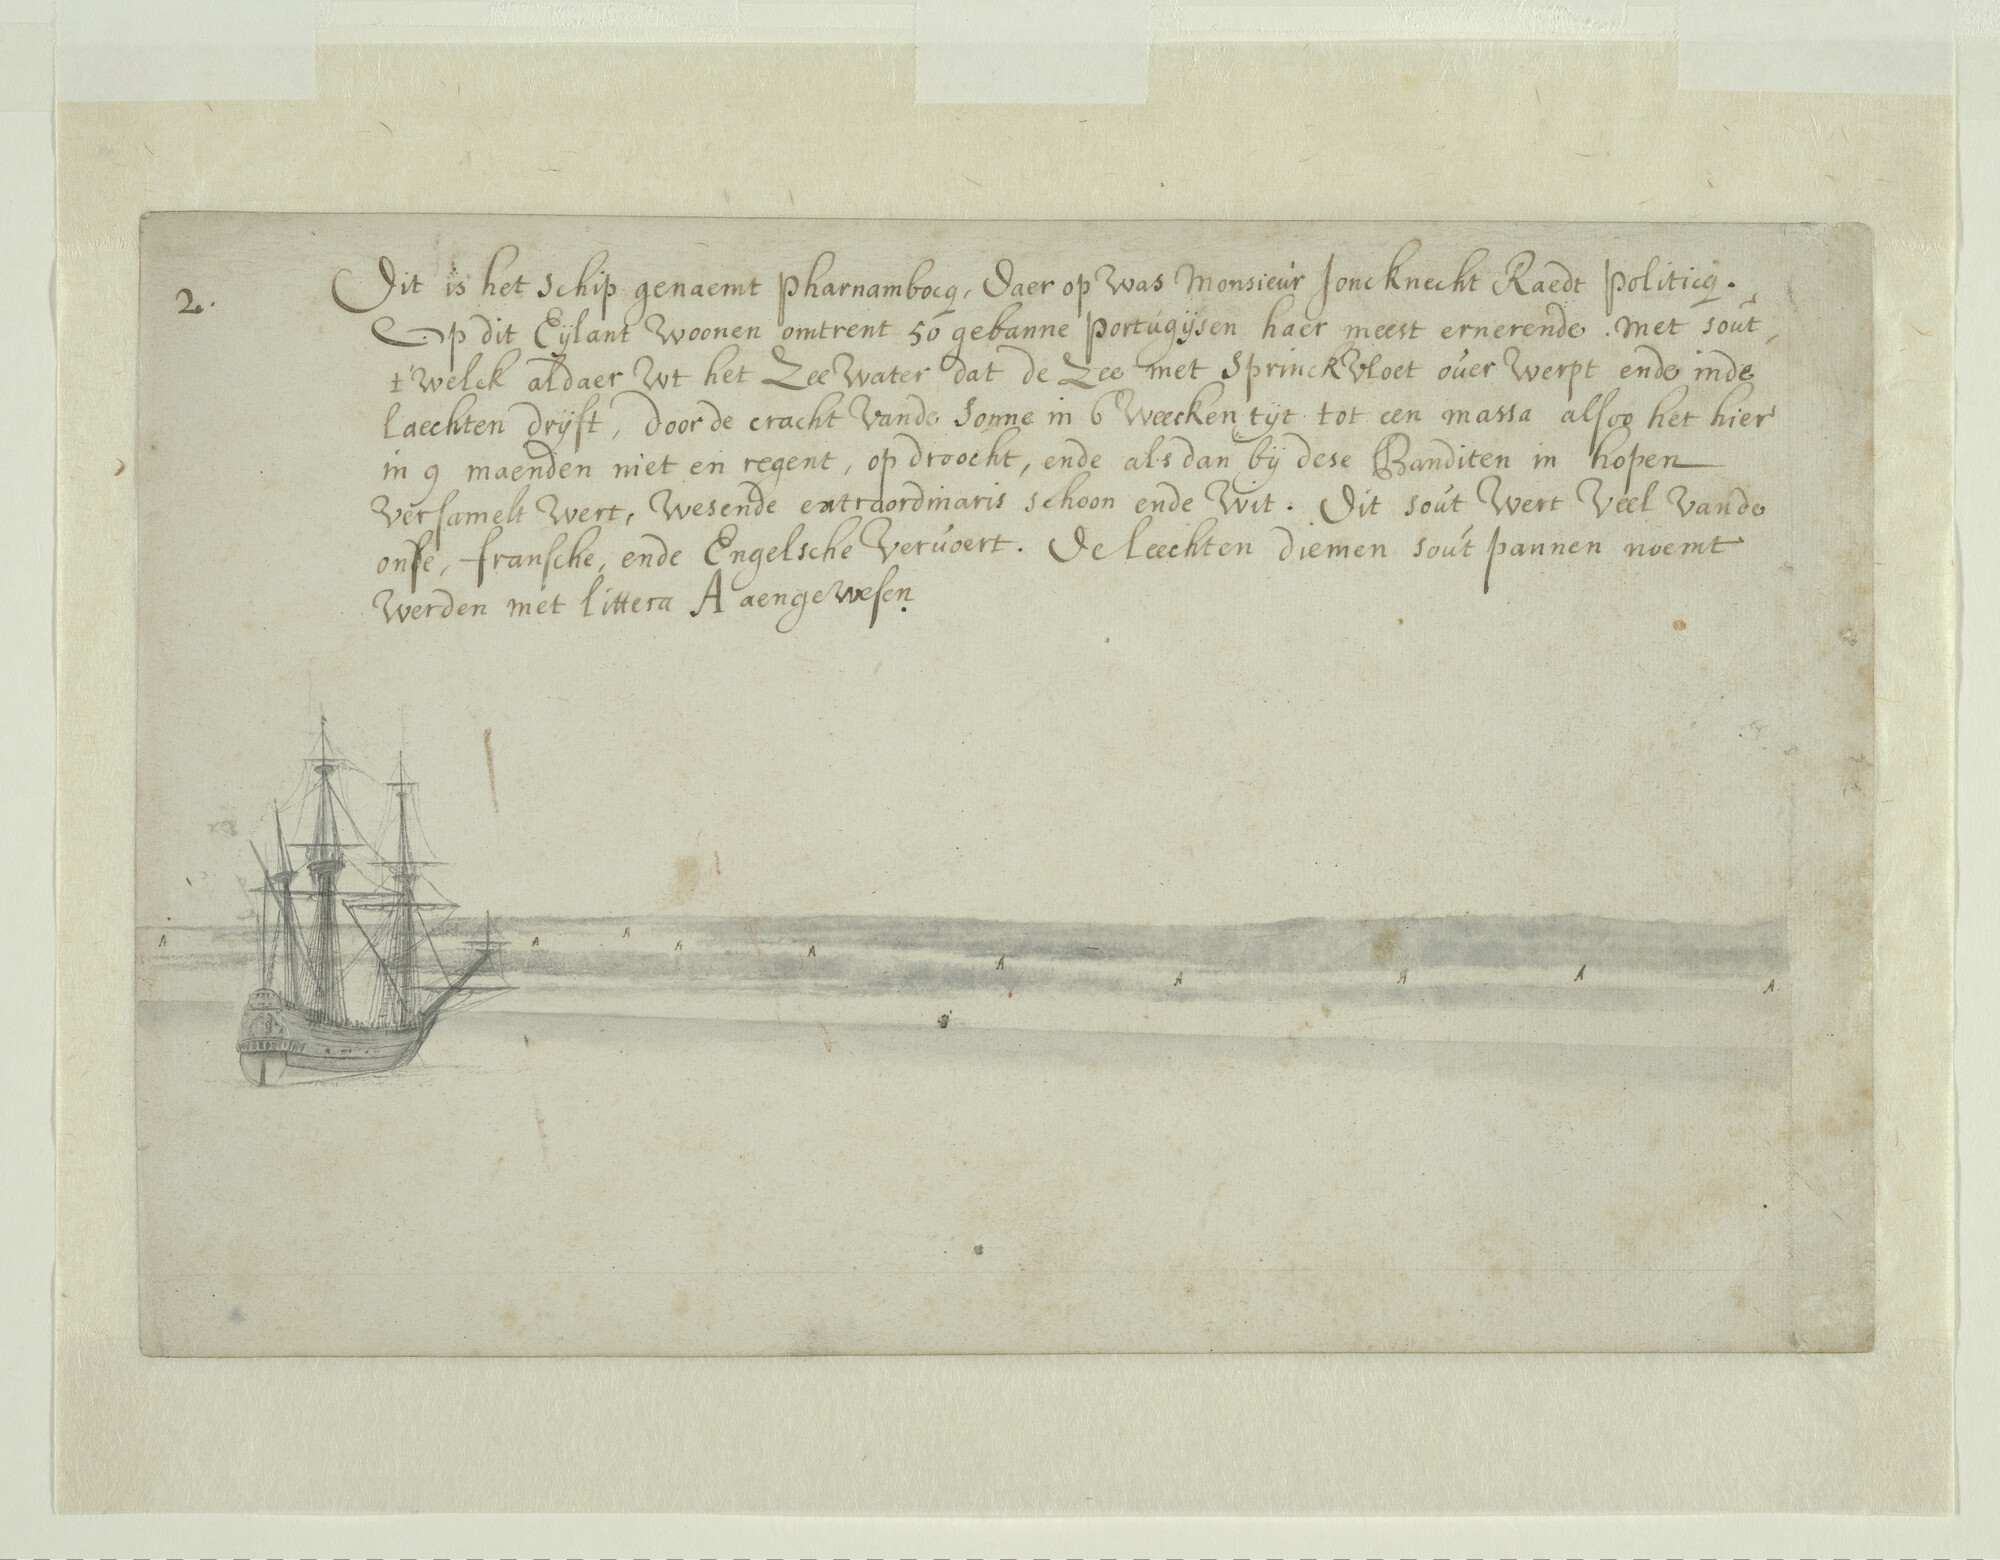 2. Dit is het schip genaemt Pharnambocq, Daer op was Monsieúr Joncknecht Raedt politicq.
Op dit Eijlant woonen omtrent 50 gebanne portúgijsen haer meest ernerende. met soút,
t'welck aldaer wt het Zee water dat de Zee met Sprinckvloet oúer werpt ende inde
laechten drijft, door de cracht vande Sonne in 6 weecken tijt tot een massa alsoo het hier
in 9 maenden niet en regent, op droocht, ende als dan bij dese Banditen in hopen
versamelt wert, wesende extraordinaris schoon ende wit. Dit soút wert veel vande
onse, fransche, ende Engelsche vervoert. De leechten diemen soút pannen noemt
werden met littera A aengewesen.
A A A A A A A A A A